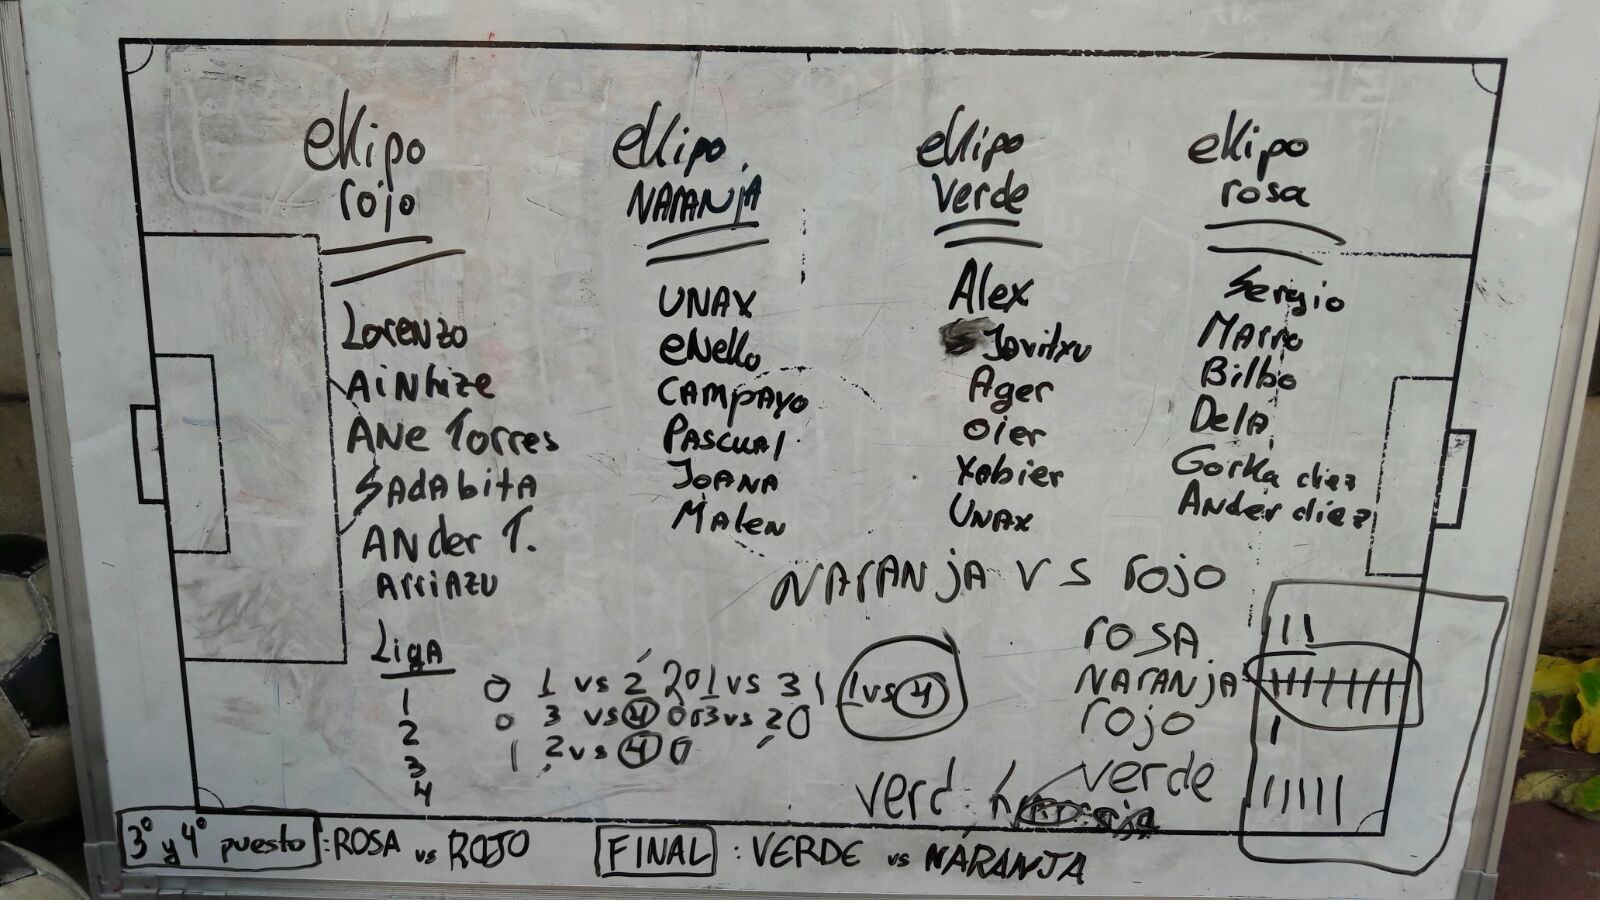 ekipo
rojo
Lorenzo
AiNhize
ANe Torres
SADAbitA
ANder T.
ArriAzu
ekipo
NARANjA
UNAX
eNeko
CAMpAyo
PAScuAl
JoANA
MAlen
ekipo
Verde
Alex
Javitxu
Ager
Oier
Xabier
UNAX
ekipo
rosa
Sergio
MArro
Bilbo
DelA
Gorka diez
ANder diez
NARANjA vs rojo
roSA
NARANjA
rojo
verde
LigA
1
2
3
4
0 1 vs 2 2 0 1 vs 3 1 1 vs 4
0 3 vs 4 0 0 3 vs 2 0
1 2 vs 4 0
verd
3º y 4º puesto : ROSA vs ROJO
FINAL : VERDE vs NARANJA